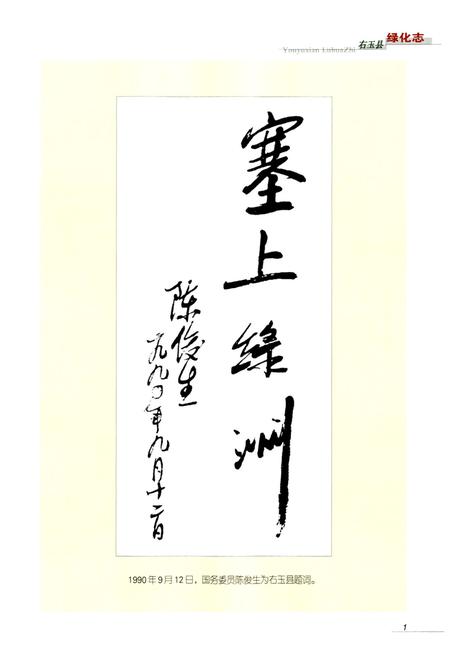 右玉县 绿化志
Youyuxian LuhuaZhi
塞上绿洲
陈俊生
一九九〇年九月十二日
1990年9月12日，国务委员陈俊生为右玉县题词。
1